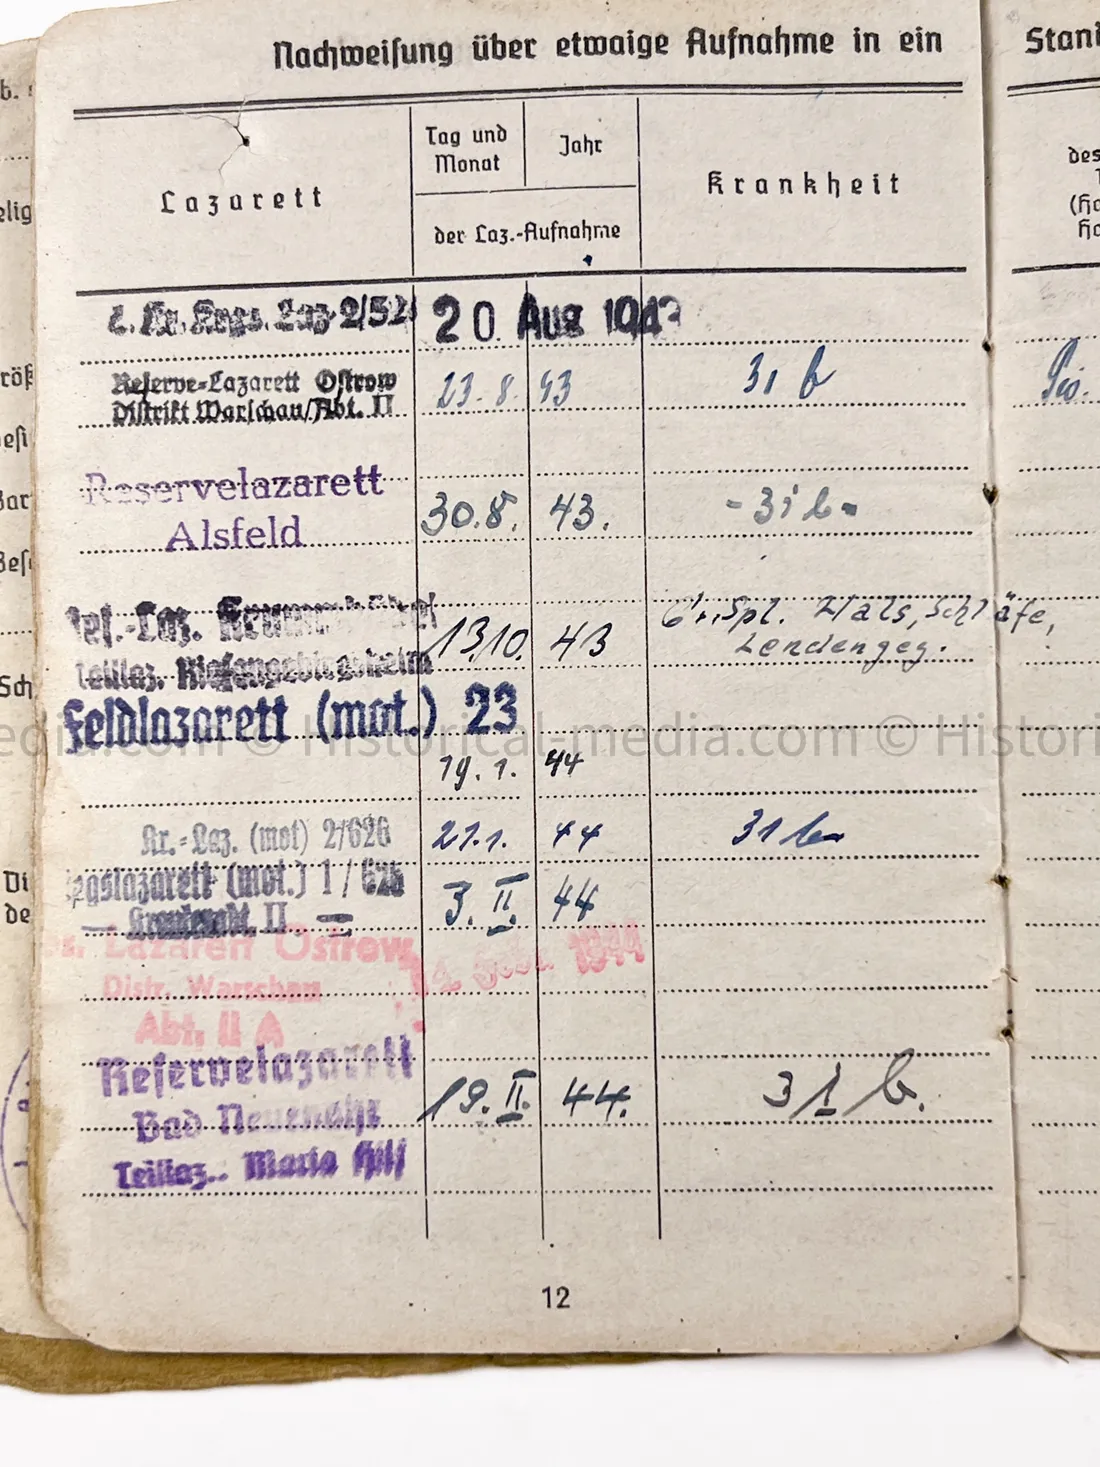 Nachweisung über etwaige Aufnahme in ein
Lazarett
Tag und Monat
Jahr
der Laz.-Aufnahme
Krankheit
Laz. 2/52
20 Aug 194
Reserve-Lazarett Ostrow
Distrikt Warschau/Abt. II
23. 8. 43
31 b
Reservelazarett
Alsfeld
30.8. 43.
- 31 b -
Laz.
Teillaz. Riesengebirgsheim
13.10. 43
Gr. Spl. Hals, Schläfe,
Lendengeg.
Feldlazarett (mot.) 23
19. 1. 44
Kr.-Laz. (mot) 2/626
21.1. 44
31 b
gslazarett (mot.) 1/626
II
3. II. 44
s. Lazarett Ostrow
Distr. Warschau
Abt. II A
1944
Reservelazarett
Bad Neuenahr
Teillaz. Maria Hilf
19. II. 44.
31 b.
12
Stand
des
(Ha
Ha
b.
elig
röß
esi
Bar
Bes
Sch
Di
de
edia.com © Historical-media.com © Histori